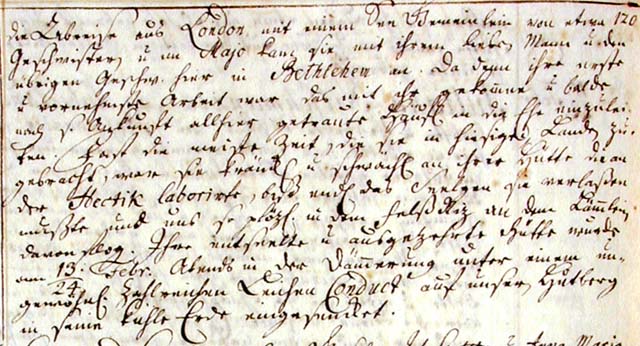 die Abreise aus London mit einem See Gemeinlein von etwa 120
Geschwistern u im Majo kam sie mit ihrem lieben Mann u den
übrigen Geschw. hier in Bethlehem an. Da denn ihre erste
u vornehmste Arbeit war das mit ihr gekomne u balde
nach s. Ankunft allhier getraute in die Ehe einzulei-
ten. Fast die meiste Zeit, die sie in hiesigen Landen zu-
gebracht, war sie kränkl. u schwächl. an ihrer Hütte die an
der Hectik laborirte, biß endl. das Seelgen sie verlaßen
mußte und uns so plözl. in den Felsen Riz an dem Lämmlein
davon flog. Ihre entseelte u ausgezehrte Hütte wurde
am 13/24. Febr. Abends in der Dämmerung unter einem un-
gewöhnl. zahlreichen Leichen Conduct auf unsern Hutberg
in seine kühle Erde eingesenket.